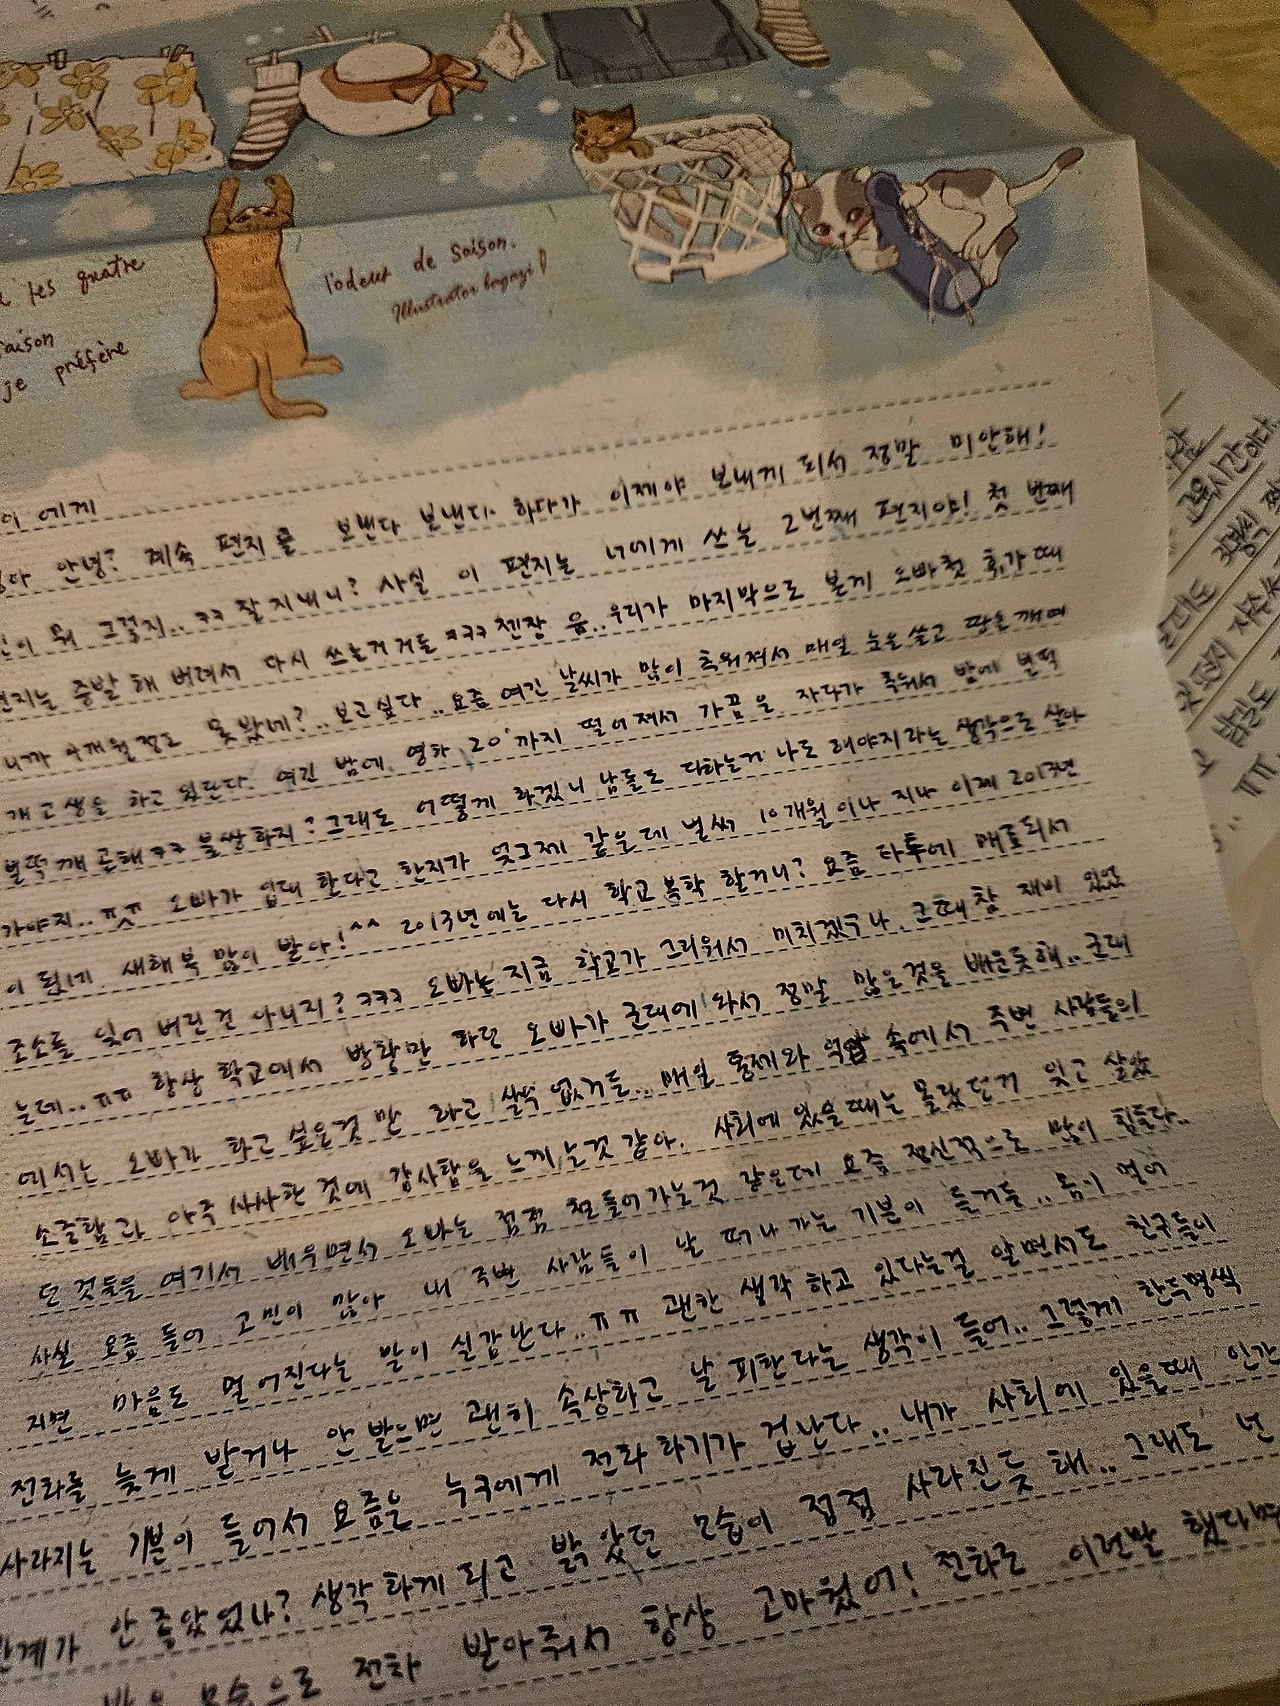 les quatre
saison
je préfère
l'odeur de saison.
Illustrator bogazi
에게
안녕? 계속 편지를 보낸다 보낸다. 하다가 이제야 보내게 되서 정말 미안해!
뭐 그렇지.. ㅋㅋ 잘 지내니? 사실 이 편지는 너에게 쓰는 2번째 편지야! 첫 번째
편지는 증발 해 버려서 다시 쓰는거거든 ㅋㅋㅋ 젠장 음.. 우리가 마지막으로 본게 오빠 첫 휴가때
니까 4개월 정도 못 봤네?.. 보고싶다.. 요즘 여긴 날씨가 많이 추워져서 매일 눈을 쓸고 땅을 깨며
개고생을 하고 있단다. 여긴 밤에 영하 20°까지 떨어져서 가끔은 자다가 추워서 밤에 번떡
벌떡 깨곤해 ㅋㅋ 불쌍하지? 그래도 어떻게 하겠니 남들도 다하는거 나도 해야지라는 생각으로 살아
가야지.. ㅠㅠ 오빠가 입대 한다고 한지가 엊그제 같은데 벌써 10개월이나 지나 이제 2013년
이 됬네. 새해 복 많이 받아! ^^ 2013년에는 다시 학교 복학 할거니? 요즘 타투에 매료되서
조소를 잊어 버린건 아니지? ㅋㅋㅋ 오빠는 지금 학교가 그리워서 미치겠구나. 그때 참 재미 있었
는데.. ㅠㅠ 항상 학교에서 방황만 하던 오빠가 군대에 와서 정말 많은것을 배운듯해.. 군대
에서는 오빠가 하고 싶은것만 하고 살 수 없거든.. 매일 통제와 억압 속에서 주변 사람들의
소중함과 아주 사사한 것에 감사함을 느끼는것 같아. 사회에 있을때는 몰랐던거 잊고 살았
던 것들을 여기서 배우면서 오빠는 점점 철들어가는것 같은데 요즘 정신적으로 많이 힘들다..
사실 요즘 들어 고민이 많아 내 주변 사람들이 날 떠나가는 기분이 들거든.. 몸이 멀어
지면 마음도 멀어진다는 말이 실감난다.. ㅠㅠ 괜한 생각 하고 있다는걸 알면서도 친구들이
전화를 늦게 받거나 안 받으면 괜히 속상하고 날 피한다는 생각이 들어.. 그렇게 한두명씩
사라지는 기분이 들어서 요즘은 누구에게 전화하기가 겁난다.. 내가 사회에 있을때 인간
관계가 안 좋았었나? 생각하게 되고 밝았던 모습이 점점 사라진듯 해.. 그래도 넌
모습으로 전화 받아줘서 항상 고마웠어! 전화로 이런말 했다면